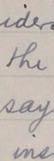 ider
the
say
ins